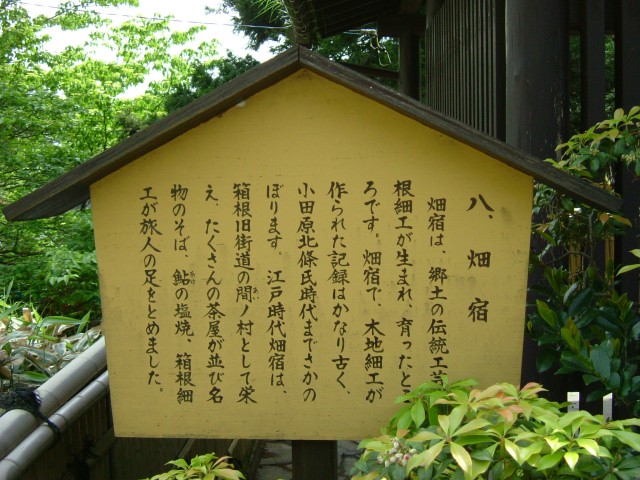 八、畑宿
畑宿は、郷土の伝統工芸
根細工が生まれ、育ったと
ろです。畑宿で、木地細工が
作られた記録はかなり古く、
小田原北條氏時代までさかの
ぼります。江戸時代畑宿は、
箱根旧街道の間ノ村として栄
あい
え、たくさんの茶屋が並び名
物のそば、鮎の塩焼、箱根細
あゆ
工が旅人の足をとめました。